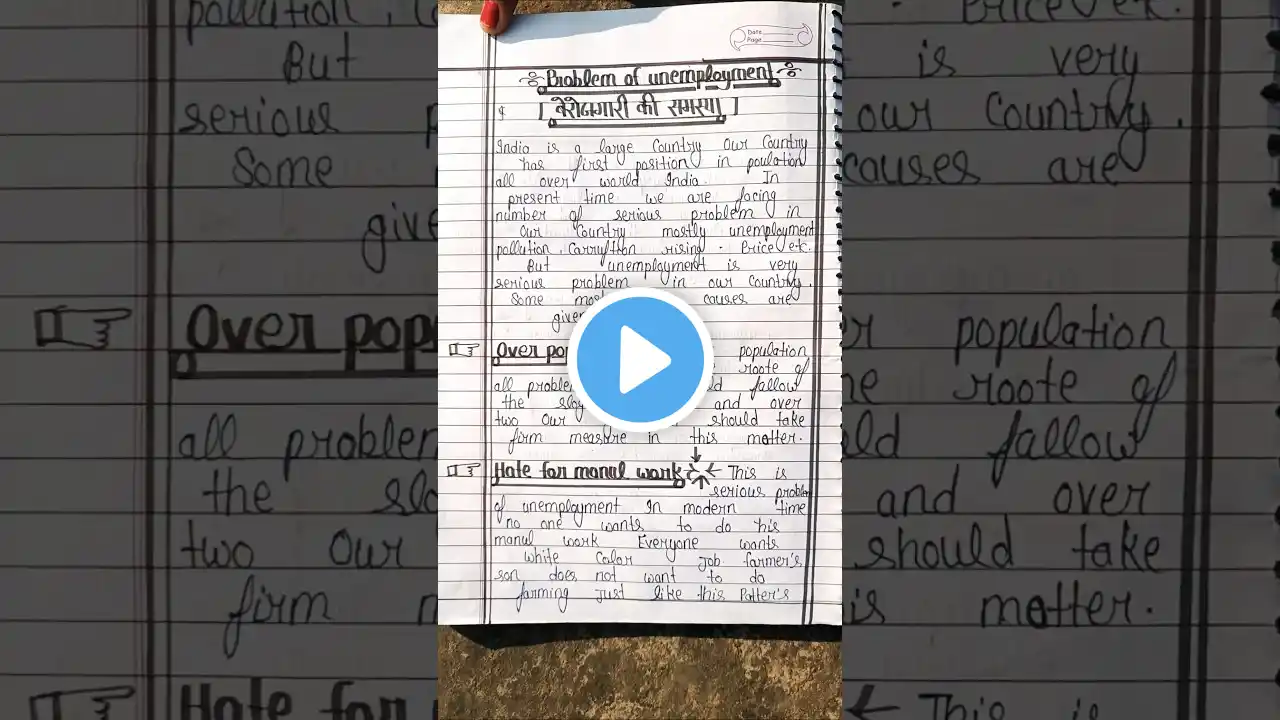 Date
Page
Problem of unemployment
[ बेरोजगारी की समस्या ]
India is a large Country Our Country
has first position in poulation
all over world India. In
present time we are facing
number of serious problem in
our Country mostly unemployment
pollution, Carruption rising . Price etc.
But unemployment is very
serious problem in our Country.
Some most causes are
given
Over pop population
roote of
all problem ld fallow
the slo and over
two Our should take
firm measure in this matter.
Hate for manul work This is
serious problem
of unemployment In modern time
no one wants to do his
manul work Everyone wants
white Color Job farmer's
son does not want to do
farming Just like this Potter's